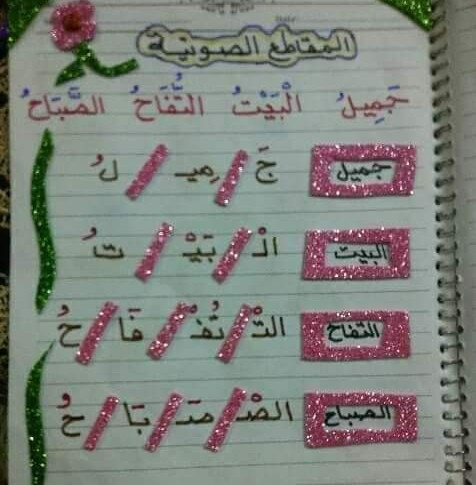 المقاطع الصوتية
جَمِيلُ الْبَيْتُ التُّفَاحُ الصَّبَاحُ
جميل جَ / مِيـ / لُ
البيت الْـ / بَيْـ / تُ
التفاح التْـ / تُفْـ / فَا / حُ
الصباح الصْـ / صَـ / بَا / حُ